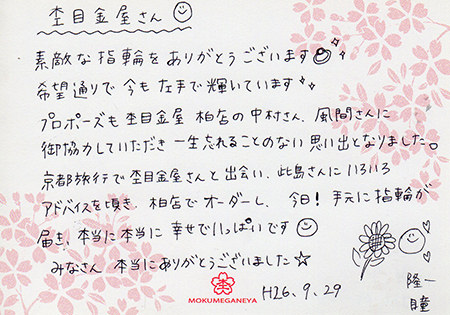 杢目金屋さん
素敵な指輪をありがとうございます
希望通りで今も左手で輝いています
プロポーズも杢目金屋 柏店の中村さん、風間さんに
御協力していただき一生忘れることのない思い出となりました。
京都旅行で杢目金屋さんと出会い、此島さんにいろいろ
アドバイスを頂き、柏店でオーダーし、今日!手元に指輪が
届き、本当に本当に幸せでいっぱいです
みなさん 本当にありがとうございました☆
隆一
瞳
MOKUMEGANEYA
H26.9.29